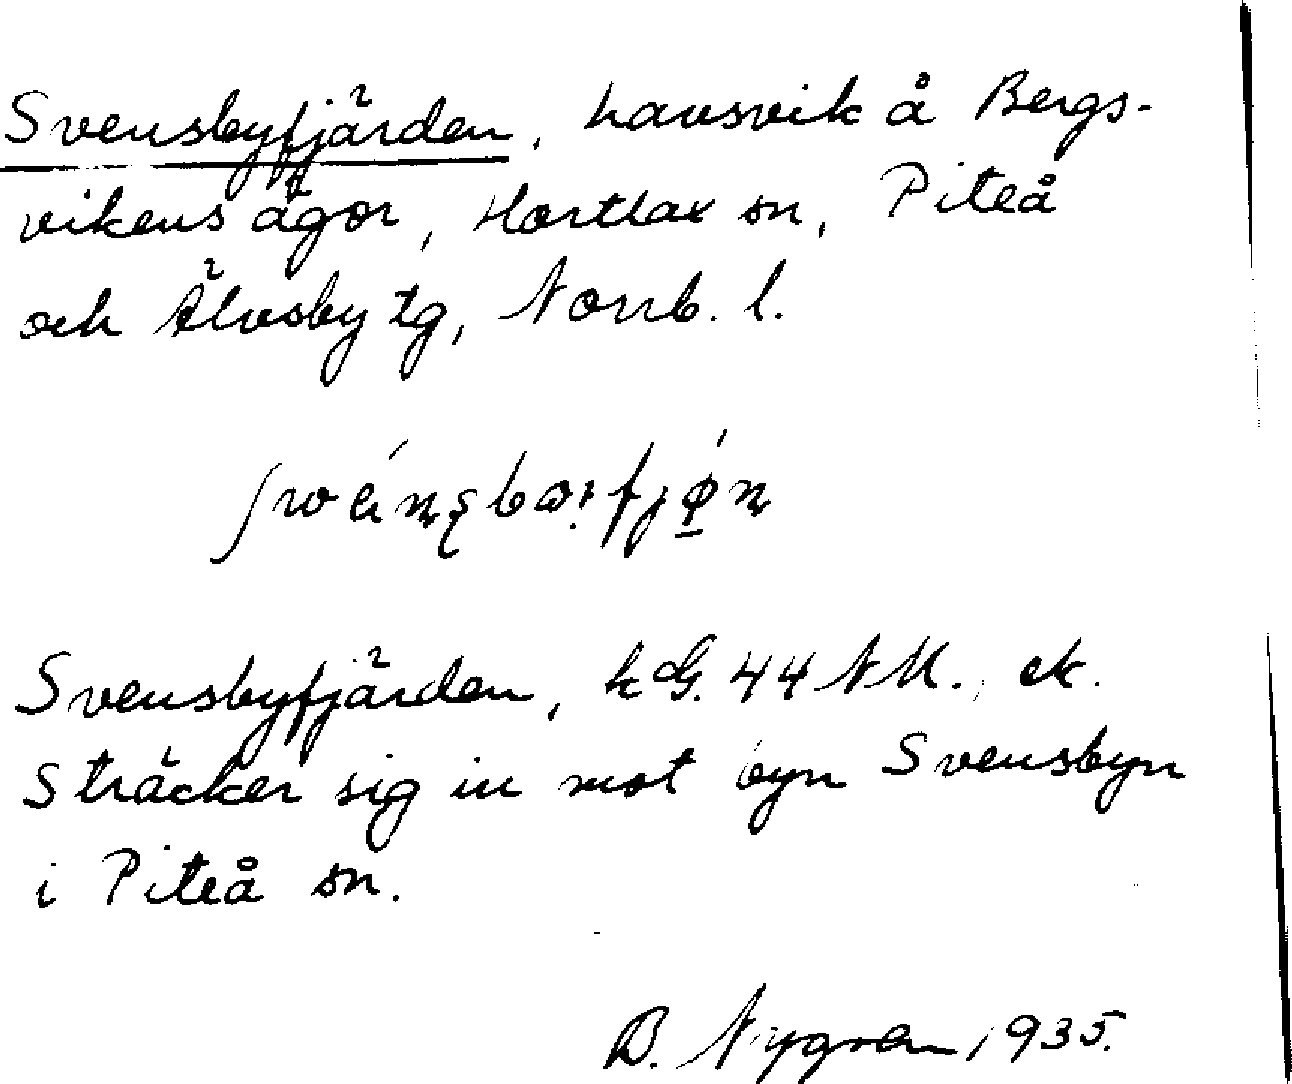 Svensbyfjärden, havsvik å Bergs-
vikens ägor, Hortlax sn, Piteå
och Älvsby tg, Norrb. l.
Svensbyfjärden, kG. 44 NM., ek.
Sträcker sig in mot byn Svensbyn
i Piteå sn.
B. Nygren 1935.